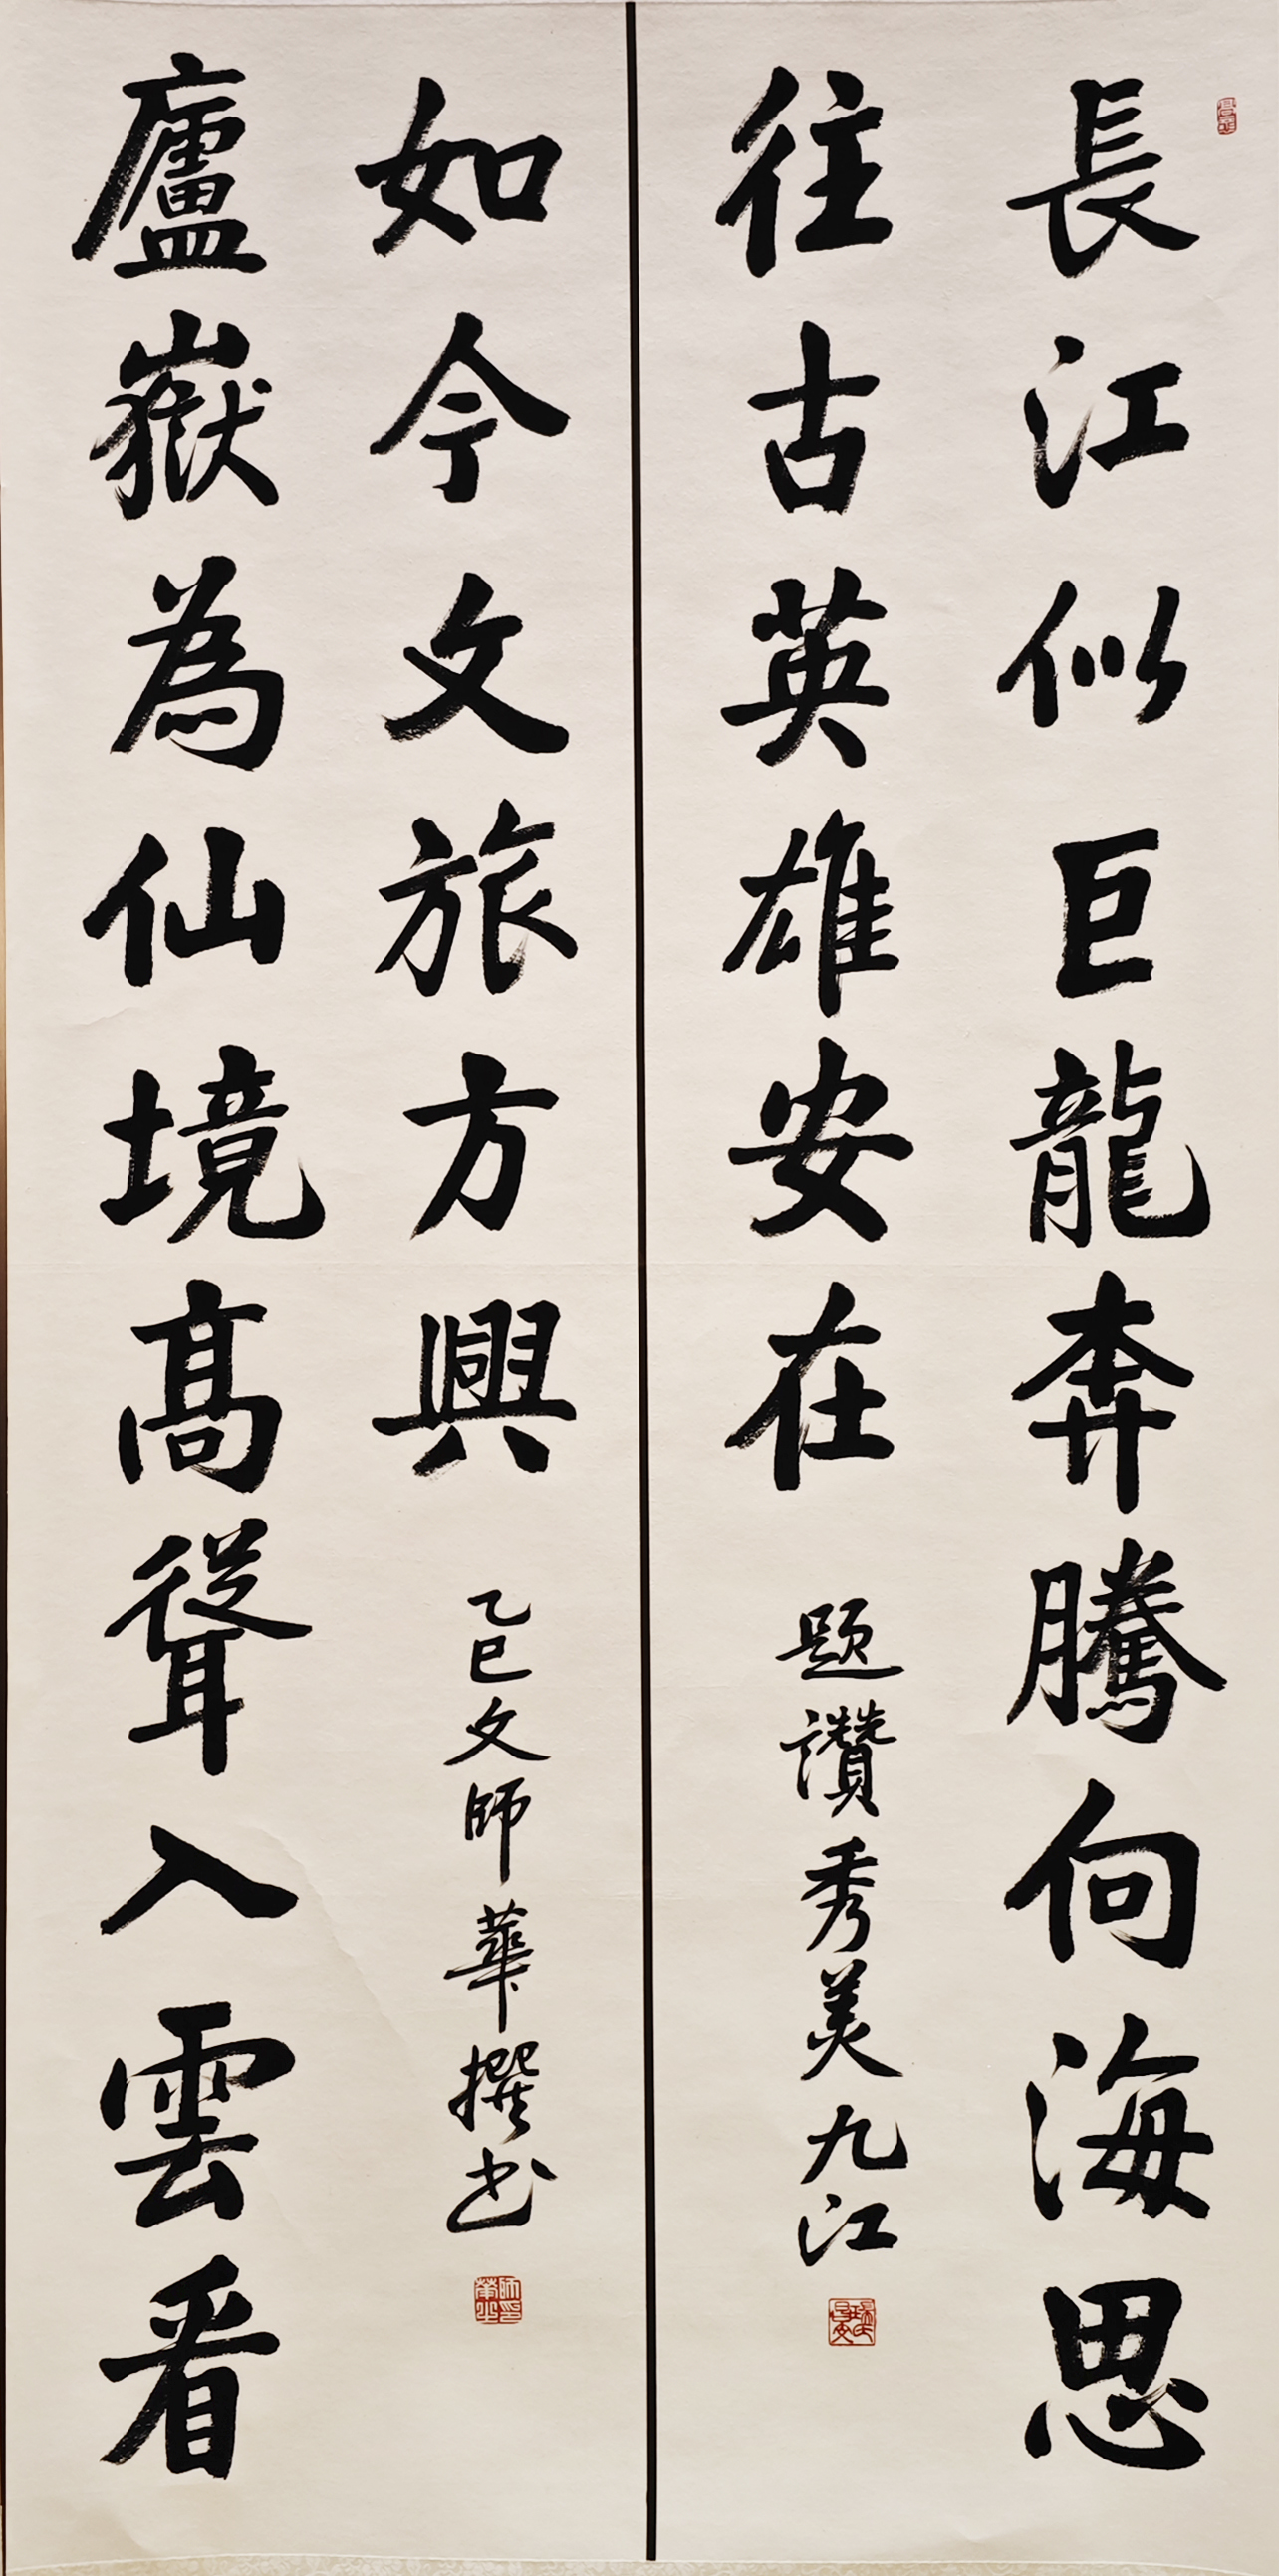 長江似巨龍奔騰向海思
往古英雄安在
题讚秀美九江
廬嶽為仙境高聳入雲看
如今文旅方興
乙巳文師華撰书